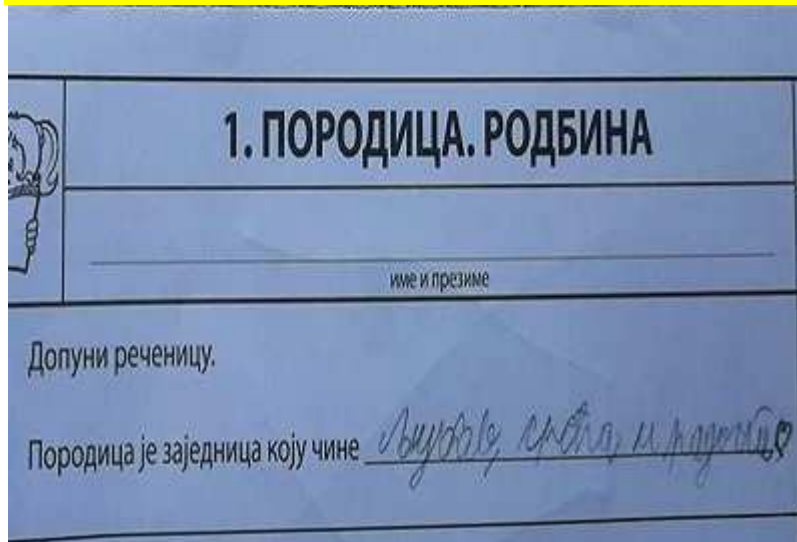 1. ПОРОДИЦА. РОДБИНА
име и презиме
Допуни реченицу.
Породица је заједница коју чине љубав, срећа, и радост